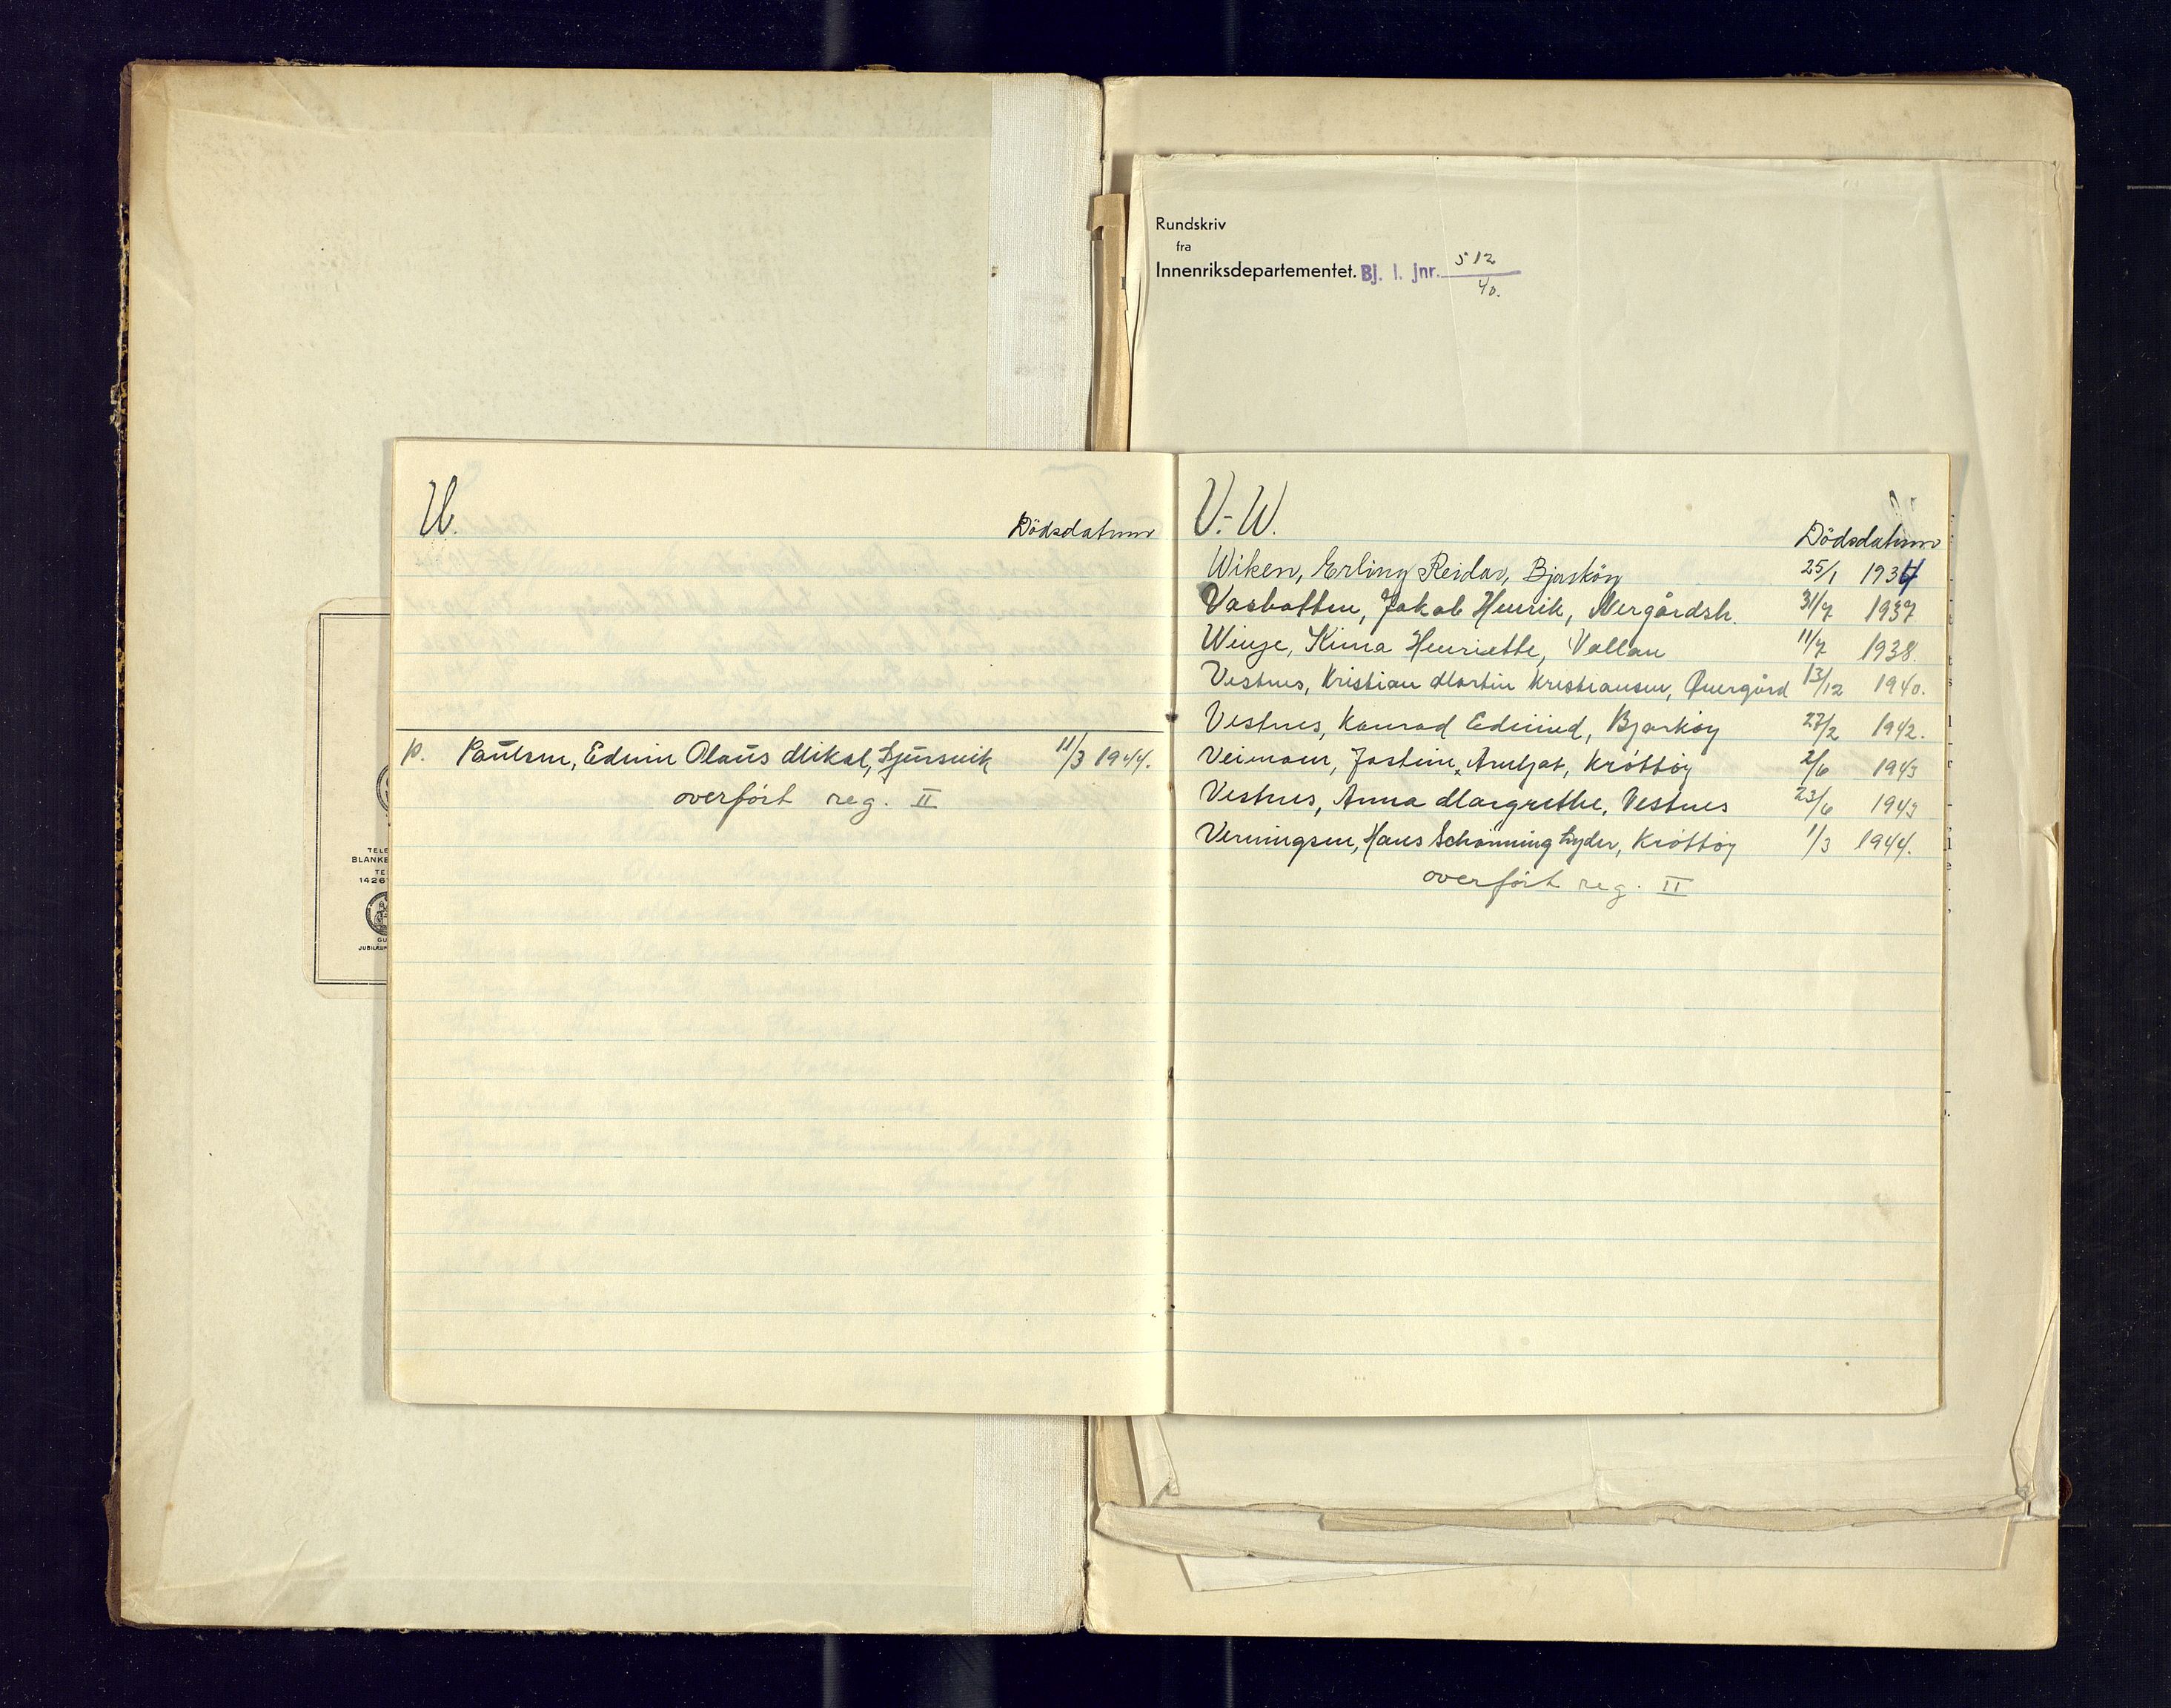 Rundskriv
fra
Innenriksdepartementet. Bj. l. jnr. 512
40.
U.
Dödsdatum
p. Paulsen, Edvin Olaus Mikal, Sjursvik 11/3 1944.
overført reg. II
TELE
BLANKE
TE
1426
GU
V.-W.
Dödsdatum
Wiken, Erling Reidar, Bjarköy 25/1 1934
Vasbotten, Jakob Henrik, Nergårdsh. 31/7 1937
Winje, Kima Henriette, Vollan 11/7 1938.
Vestnes, Kristian Martin Kristiansen, Øvergård 13/12 1940.
Vestnes, Konrad Edvind, Bjarköy 27/2 1942.
Veimoen, Jostein Arnljot, Krøttöy 2/6 1943
Vestnes, Anna Margrethe, Vestnes 23/6 1943
Verningsen, Hans Schønning Lyder, Krøttöy 1/3 1944.
overført reg. II